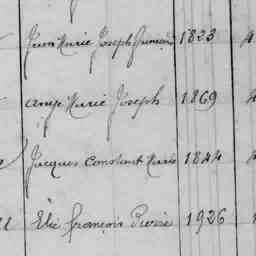 Jean Marie Joseph 1823
Ange Marie Joseph 1869
Jacques Constant Marie 1844
Elie françois Pierre 1926